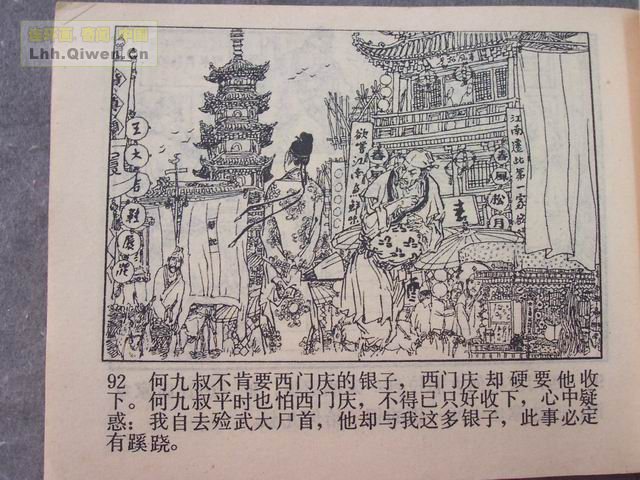 连环画·奇闻·中国
Lhh.Qiwen.Cn
王大吉
欲尝江南
春风松月
江南遗北第一家
92 何九叔不肯要西门庆的银子，西门庆却硬要他收
下。何九叔平时也怕西门庆，不得已只好收下，心中疑
惑：我自去殓武大尸首，他却与我这多银子，此事必定
有蹊跷。